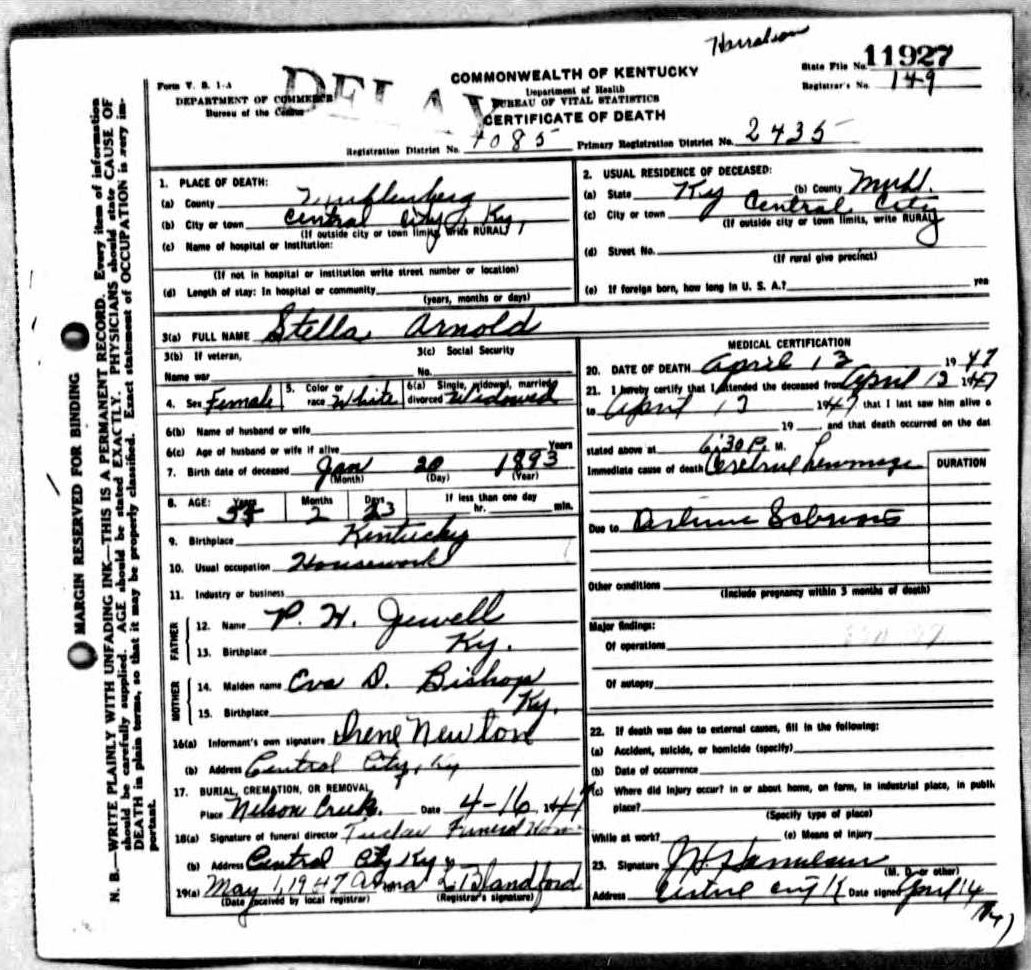 Harralson
State File No. 11927
Registrar's No. 149
Form V. S. 1-A
DEPARTMENT OF COMMERCE
Bureau of the Census
DELAY
COMMONWEALTH OF KENTUCKY
Department of Health
BUREAU OF VITAL STATISTICS
CERTIFICATE OF DEATH
Registration District No. 1085 Primary Registration District No. 2435
MARGIN RESERVED FOR BINDING
N. B.—WRITE PLAINLY WITH UNFADING INK—THIS IS A PERMANENT RECORD. Every item of information
should be carefully supplied. AGE should be stated EXACTLY. PHYSICIANS should state CAUSE OF
DEATH in plain terms, so that it may be properly classified. Exact statement of OCCUPATION is very im-
portant.
1. PLACE OF DEATH:
(a) County Muhlenberg
(b) City or town Central City, Ky,
(If outside city or town limits, write RURAL)
(c) Name of hospital or institution:
(If not in hospital or institution write street number or location)
(d) Length of stay: In hospital or community
(years, months or days)
2. USUAL RESIDENCE OF DECEASED:
(a) State Ky (b) County Muhl.
(c) City or town Central City
(If outside city or town limits, write RURAL)
(d) Street No.
(If rural give precinct)
(e) If foreign born, how long in U. S. A.? yea
3(a) FULL NAME Stella Arnold
3(b) If veteran,
Name war
3(c) Social Security
No.
4. Sex Female
5. Color or
race White
6(a) Single, widowed, married
divorced Widowed
6(b) Name of husband or wife
6(c) Age of husband or wife if alive Years
7. Birth date of deceased Jan 20 1893
(Month) (Day) (Year)
8. AGE: Years 54 Months 2 Days 23 If less than one day
hr. min.
9. Birthplace Kentucky
10. Usual occupation Housework
11. Industry or business
FATHER
12. Name P. H. Jewell
13. Birthplace Ky.
MOTHER
14. Maiden name Eva D. Bishop
15. Birthplace Ky.
16(a) Informant's own signature Irene Newton
(b) Address Central City, Ky
17. BURIAL, CREMATION, OR REMOVAL
Place Nelson Creek Date 4-16, 1947
18(a) Signature of funeral director Tucker Funeral Home
(b) Address Central City Ky
19(a) May 1, 1947 Anna L Blandford
(Date received by local registrar) (Registrar's signature)
MEDICAL CERTIFICATION
20. DATE OF DEATH April 13 1947
21. I hereby certify that I attended the deceased from April 13 1947
to April 13 1947 that I last saw him alive o
19 and that death occurred on the dat
stated above at 6:30 P. M.
Immediate cause of death Cerebral hemorrhage
DURATION
Due to
Other conditions
(Include pregnancy within 3 months of death)
Major findings:
Of operations
Of autopsy
22. If death was due to external causes, fill in the following:
(a) Accident, suicide, or homicide (specify)
(b) Date of occurrence
(c) Where did injury occur? in or about home, on farm, in industrial place, in publi
place?
(Specify type of place)
While at work? (e) Means of injury
23. Signature
(M. D. or other)
Address Central City K Date signed April 14
1947